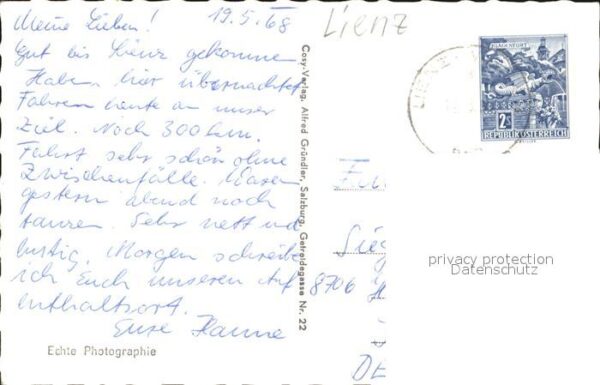 Meine Lieben! 19.5.68
Gut bis Lienz gekommen
Haben hier übernachtet
Fahren heute an unser
Ziel. Noch 300 km.
Fahrt sehr schön ohne
Zwischenfälle. Waren
gestern abend noch
tanzen. Sehr nett und
lustig. Morgen schreibe
ich Euch unseren Auf
enthaltsort.
Eure Hanne
Echte Photographie
Cosy-Verlag, Alfred Gründler, Salzburg, Getreidegasse Nr. 22
Lienz
KLAGENFURT
2S
REPUBLIK ÖSTERREICH
8706
privacy protection
Datenschutz